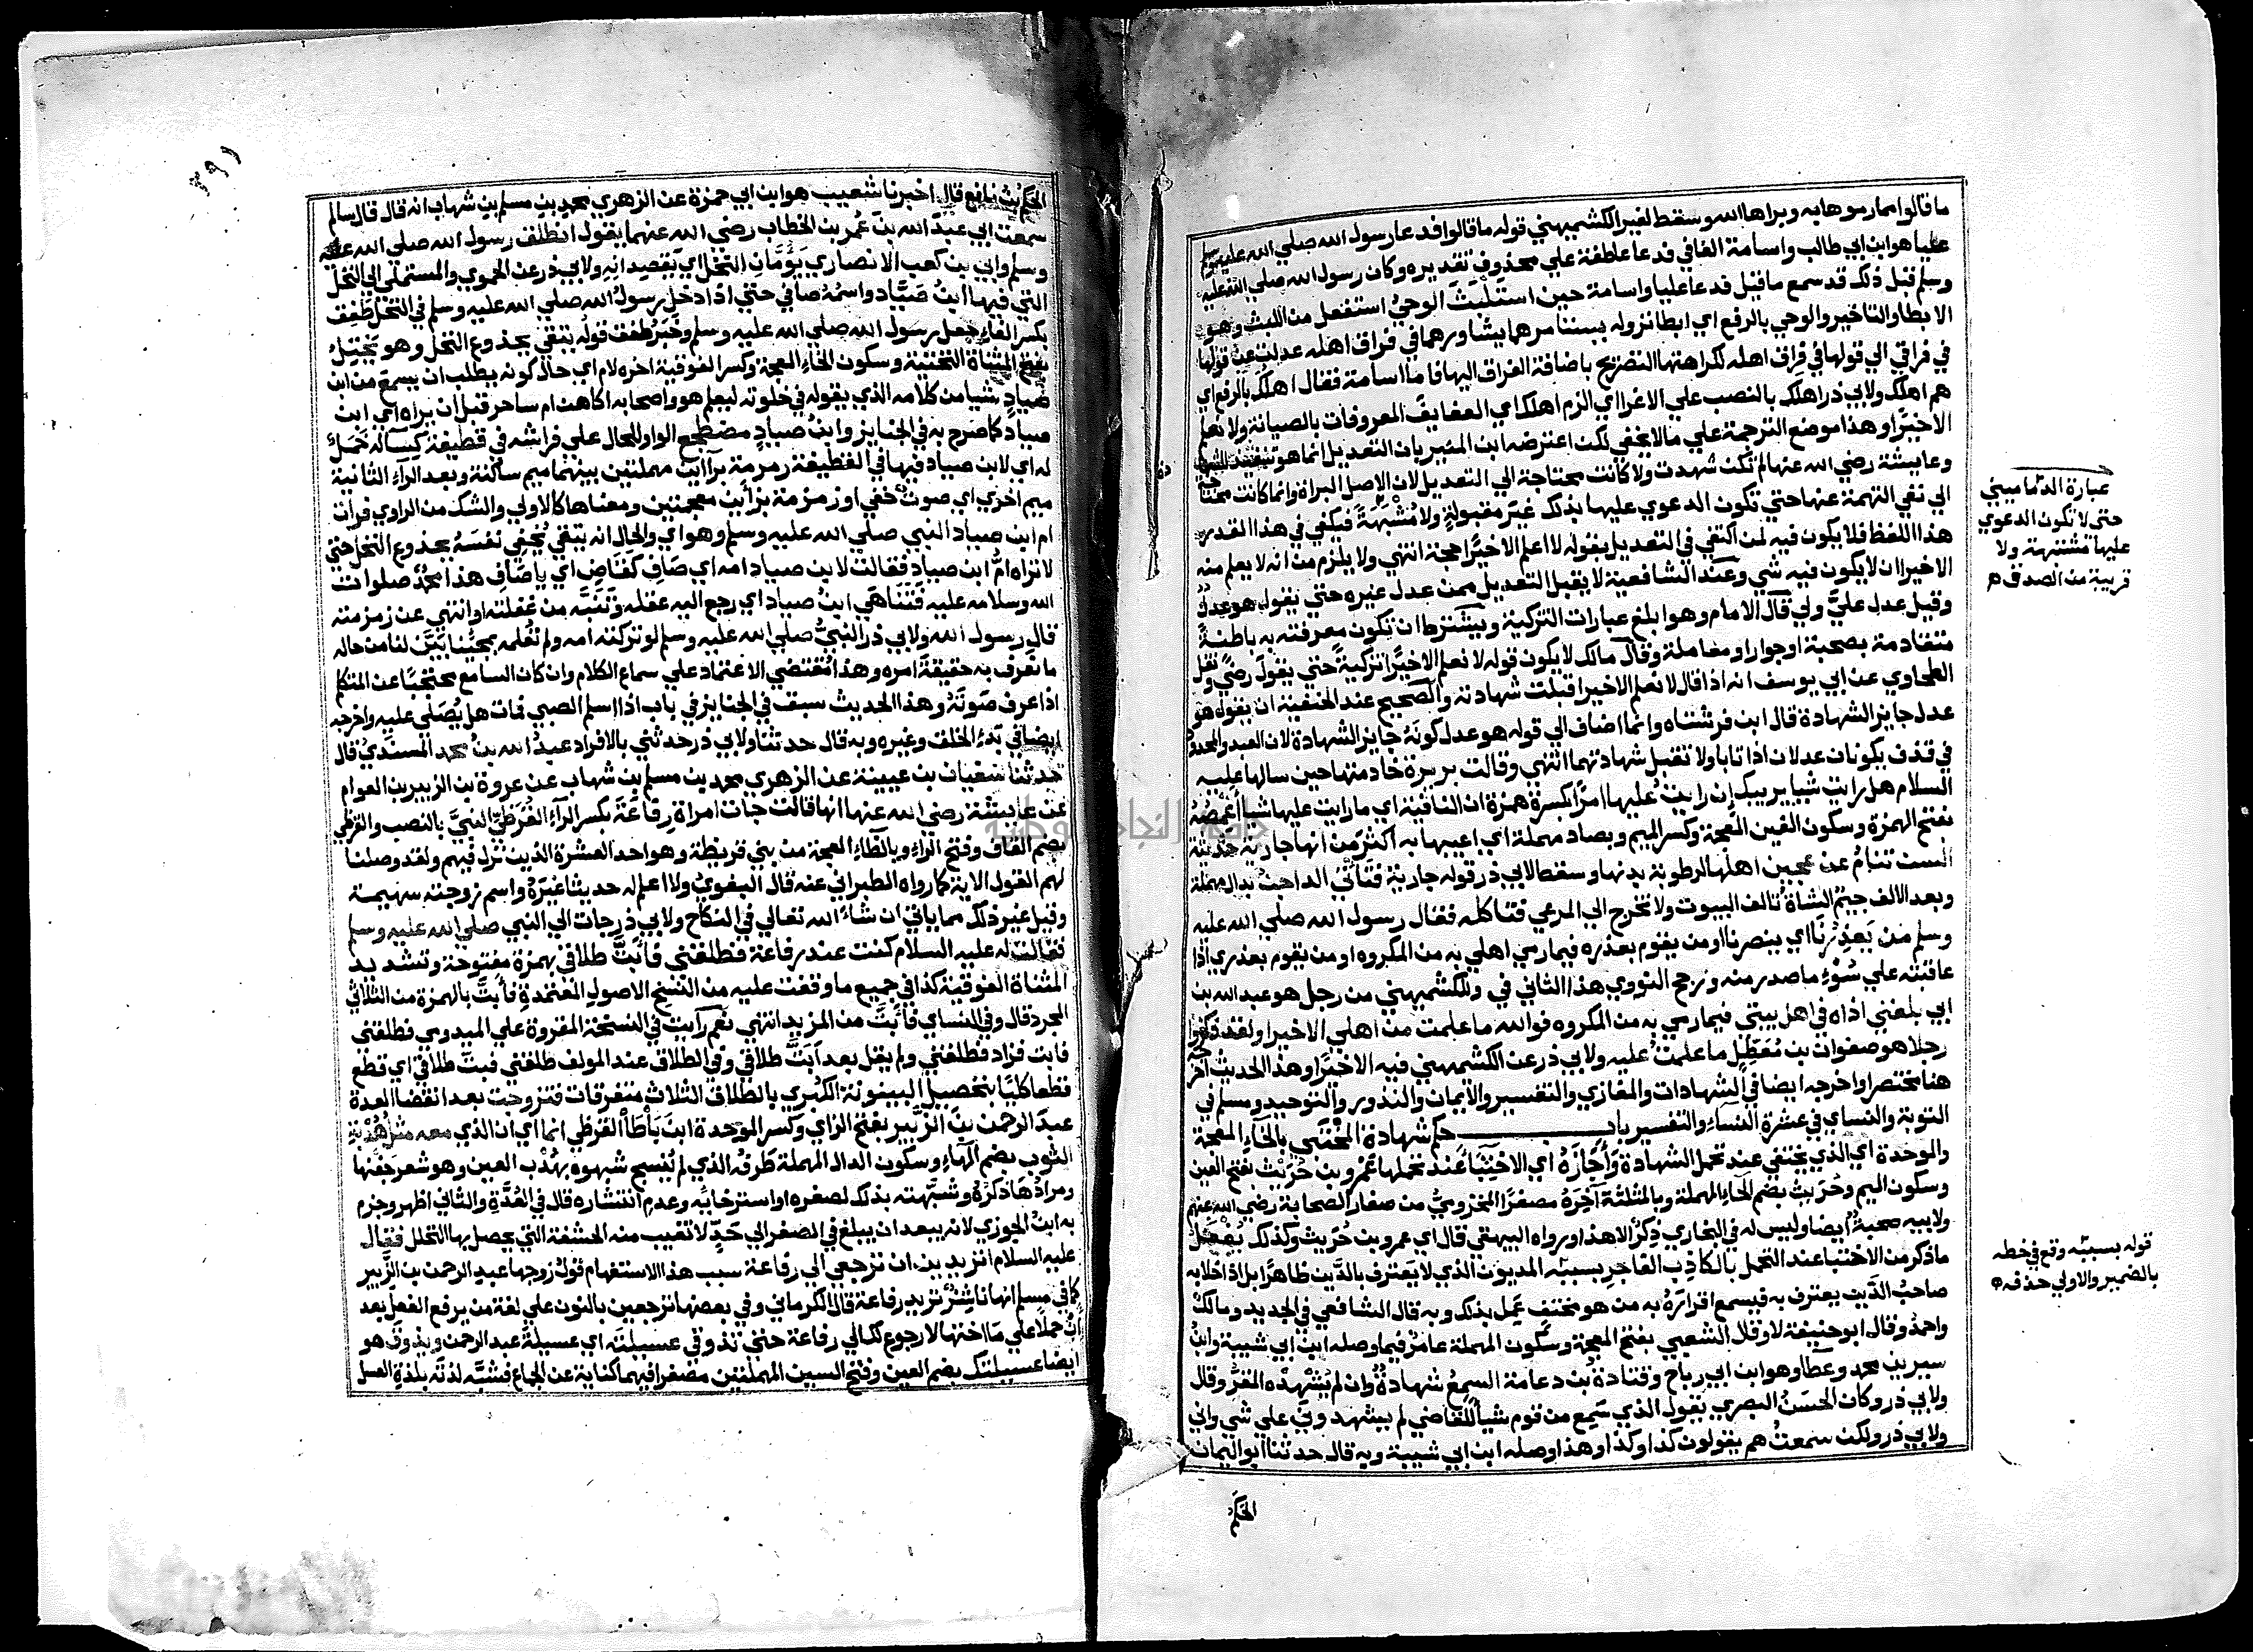 ما قالوا مما رموها به وبراها الله وسقط لغير الكشميهني قوله ما قالوا فدعا رسول الله صلي الله عليه وسلم
عليا هو ابن ابي طالب واسامة الفا في فدعا عاطفة علي محذوف تقديره وكان رسول الله صلي الله عليه
وسلم قبل ذلك قد سمع ما قيل فدعا عليا واسامة حين استلبث الوحي استفعل من اللبث وهو
الابطا والتاخير والوحي بالرفع اي ابطا نزوله يستامرهما يشاورهما في فراق اهله عدلت عن قولها
في فراقي الي قولها في فراق اهله لكراهتها التصريح باضافة الفراق اليها فاما اسامة فقال اهلك بالرفع اي
هم اهلك ولابي ذر اهلك بالنصب علي الاغرا اي الزم اهلك اي العفايف المعروفات بالصيانة ولا نعلم
الا خيرا وهذا موضع الترجمة علي ما لا يخفي لكن اعترضه ابن المنير بان التعديل انما هو تنفيذ للشهادة
وعايشة رضي الله عنها لم تكن شهدت ولا كانت محتاجة الي التعديل لان الاصل البراة وانما كانت محتاجة
الي نفي التهمة عنها حتي تكون الدعوي عليها بذلك غير مقبولة ولا مشبهة فيكفي في هذا القدر
هذا اللفظ فلا يكون فيه لمن اكتفي في التعديل بقوله لا اعلم الا خيرا حجة انتهي ولا يلزم من انه لا يعلم منه
الا خيرا ان لا يكون فيه شي وعند الشافعية لا يقبل التعديل ممن عدل غيره حتي يقول هو عدل
وقيل عدل علي ولي قال الامام وهو ابلغ عبارات التزكية ويشترط ان تكون معرفته به باطنة
متقادمة بصحبة او جوار او معاملة وقال مالك لا يكون قوله لا نعلم الا خيرا تزكية حتي يقول رضي ونقل
الطحاوي عن ابي يوسف انه اذا قال لا نعلم الا خيرا قبلت شهادته والصحيح عند الحنفية ان يقول هو
عدل جايز الشهادة قال ابن فرشتاه وانما اضاف الي قوله هو عدل كونه جايز الشهادة لان العبد والمحدود
في قذف يكونان عدلان اذا تابا ولا تقبل شهادتهما انتهي وقالت بريرة خادمتها حين سالها عليه
السلام هل رايت شيا يريبك ان رايت عليها امرا بكسرة همزة ان النافية اي ما رايت عليها شيا اغمصه
بفتح الهمزة وسكون الغين المعجمة وكسر الميم وبصاد مهملة اي اعيبها به اكثر من انها جارية حديثة
السن تنام عن عجين اهلها لرطوبة بدنها وسقط لابي ذر قوله جارية فتاتي الداجن بدال مهملة
وبعد الالف جيم الشاة تالف البيوت ولا تخرج الي المرعي فتاكله فقال رسول الله صلي الله عليه
وسلم من يعذرنا اي ينصرنا او من يقوم بعذره فيما رمي اهلي به من المكروه او من يقوم بعذري اذا
عاقبته علي سوء ما صدر منه ورجح النووي هذا الثاني في وللكشميهني من رجل هو عبد الله بن
ابي بلغني اذاه في اهل بيتي فيما رمي به من المكروه فوالله ما علمت من اهلي الا خيرا ولقد ذكروا
رجلا هو صفوان بن معطل ما علمت عليه ولابي ذر عن الكشميهني فيه الا خيرا وهذا الحديث اخرجه
هنا مختصرا واخرجه ايضا في الشهادات والمغازي والتفسير والايمان والنذور والتوحيد ومسلم في
التوبة والنساي في عشرة النساء والتفسير باب حكم شهادة المختبي بالخاء المعجمة
والموحدة اي الذي يختفي عند تحمل الشهادة واجازه اي الاختباء عند تحملها عمرو بن حريث بفتح العين
وسكون الميم وحريث بضم الحاء المهملة وبالمثلثة اخره مصغرا المخزومي من صغار الصحابة رضي الله عنهم
ولابيه صحبة ايضا وليس له في البخاري ذكر الا هذا ورواه البيهقي قال اي عمرو بن حريث وكذلك يفعل
ما ذكر من الاختبا عند التحمل بالكاذب الفاجر بسببه المديون الذي لا يعترف بالدين ظاهرا بل اذا خلا به
صاحب الدين يعترف به فيسمع اقراره به من هو مختف عمل بذلك وبه قال الشافعي في الجديد ومالك
واحمد وقال ابو حنيفة لا وقال الشعبي بفتح المعجمة وسكون المهملة عامر فيما وصله ابن ابي شيبة وابن
سيرين محمد وعطا وهو ابن ابي رباح وقتادة بن دعامة السمع شهادة وان لم يشهده المقر وقال
ولابي ذر وكان الحسن البصري يقول الذي سمع من قوم شيا للقاضي لم يشهدوني علي شي واني
ولابي ذر ولكن سمعت هم يقولون كذا وكذا وهذا وصله ابن ابي شيبة وبه قال حدثنا ابو اليمان
الحكم
عبارة الدماميني
حتي لا تكون الدعوي
عليها مشتبهة ولا
قريبة من الصدق ه
قوله بسببه وقع في خطه
بالضمير والاولي حذفه ه
٣٩١
الحكم بن نافع قال اخبرنا شعيب هو ابن ابي حمزة عن الزهري محمد بن مسلم بن شهاب انه قال قال سالم
سمعت ابي عبد الله بن عمر بن الخطاب رضي الله عنهما يقول انطلق رسول الله صلي الله عليه
وسلم وابي بن كعب الانصاري يؤمان النخل اي يقصدانه ولابي ذر عن الحموي والمستملي الي النخل
التي فيها ابن صياد واسمه صافي حتي اذا دخل رسول الله صلي الله عليه وسلم في النخل طفق
بكسر الفاء جعل رسول الله صلي الله عليه وسلم وخبر طفق قوله يتقي بجذوع النخل وهو يختل
بفتح المثناة التحتية وسكون الخاء المعجمة وكسر الفوقية اخره لام اي حال كونه يطلب ان يسمع من ابن
صياد شيا من كلامه الذي يقوله في خلوته ليعلم هو واصحابه اكاهن ام ساحر قبل ان يراه اي ابن
صياد كما صرح به في الجنايز وابن صياد مضطجع الواو للحال علي فراشه في قطيفة كساء له خمل
له اي لابن صياد فيها في القطيفة رمرمة براءين مهملتين بينهما ميم ساكنة وبعد الراء الثانية
ميم اخري اي صوت خفي او زمزمة بزايين معجمتين ومعناها كالاولي والشك من الراوي فرات
ام ابن صياد النبي صلي الله عليه وسلم وهو اي والحال انه يتقي يخفي نفسه بجذوع النخل حتي
لا تراه ام ابن صياد فقالت لابن صياد امه اي صاف كقاض اي يا صاف هذا محمد صلوات
الله وسلامه عليه فتناهي ابن صياد اي رجع اليه عقله وتنبه من غفلته او انتهي عن زمزمته
قال رسول الله ولابي ذر النبي صلي الله عليه وسلم لو تركته امه ولم تعلمه بمجيئنا بين لنا من حاله
ما نعرف به حقيقة امره وهذا يقتضي الاعتماد علي سماع الكلام وان كان السامع محتجبا عن المتكلم
اذا عرف صوته وهذا الحديث سبق في الجنايز في باب اذا اسلم الصبي فمات هل يصلي عليه واخرجه
ايضا في بدء الخلق وغيره وبه قال حدثنا ولابي ذر حدثني بالافراد عبد الله بن محمد المسندي قال
حدثنا سفيان بن عيينة عن الزهري محمد بن مسلم بن شهاب عن عروة بن الزبير بن العوام
عن عايشة رضي الله عنها انها قالت جات امراة رفاعة بكسر الراء القرظي النبي بالنصب والقرظي
بضم القاف وفتح الراء وبالظاء المعجمة من بني قريظة وهو احد العشرة الذين نزل فيهم ولقد وصلنا
لهم القول الاية كما رواه الطبراني عنه قال البغوي ولا اعلم له حديثا غيره واسم زوجته سهيمة
وقيل غير ذلك مما ياتي ان شاء الله تعالي في النكاح ولابي ذر جات الي النبي صلي الله عليه وسلم
فقالت له عليه السلام كنت عند رفاعة فطلقني فابت طلاقي بهمزة مفتوحة وتشديد
المثناة الفوقية كذا في جميع ما وقفت عليه من النسخ الاصول المعتمدة فابت بالهمزة من الثلاثي
المجرد قال وفي النساي فابت من المزيد انتهي نعم رايت في النسخة المقروة علي الميدومي فطلقني
فابت فزاد فطلقني ولم يقل بعد ابت طلاقي وفي الطلاق عند المولف طلقني فبت طلاقي اي قطع
قطعا كليا بتحصيل البينونة الكبري بالطلاق الثلاث متفرقات فتزوجت بعد انقضا العدة
عبد الرحمن بن الزبير بفتح الزاي وكسر الموحدة ابن باطا القرظي انما اي ان الذي معه مثل هدبة
الثوب بضم الهاء وسكون الدال المهملة طرفه الذي لم ينسج شبهوه بهدب العين وهو شعر جفنها
ومرادها ذكره وشبهته بذلك لصغره او استرخايه وعدم انتشاره قال في العدة والثاني اظهر وجزم
به ابن الجوزي لانه يبعد ان يبلغ في الصغر الي حد لا تغيب منه الحشفة التي يحصل بها التحلل فقال
عليه السلام اتريدين ان ترجعي الي رفاعة سبب هذا الاستفهام قول زوجها عبد الرحمن بن الزبير
كما في مسلم انها ناشز تريد رفاعة قال الكرماني وفي بعضها ترجعين بالنون علي لغة من يرفع الفعل بعد
ان حملا علي ما اختها لا رجوع لك الي رفاعة حتي تذوقي عسيلته اي عسيلة عبد الرحمن ويذوق هو
ايضا عسيلتك بضم العين وفتح السين المهملتين مصغرا فيهما كناية عن الجماع فشبه لذته بلذة العسل